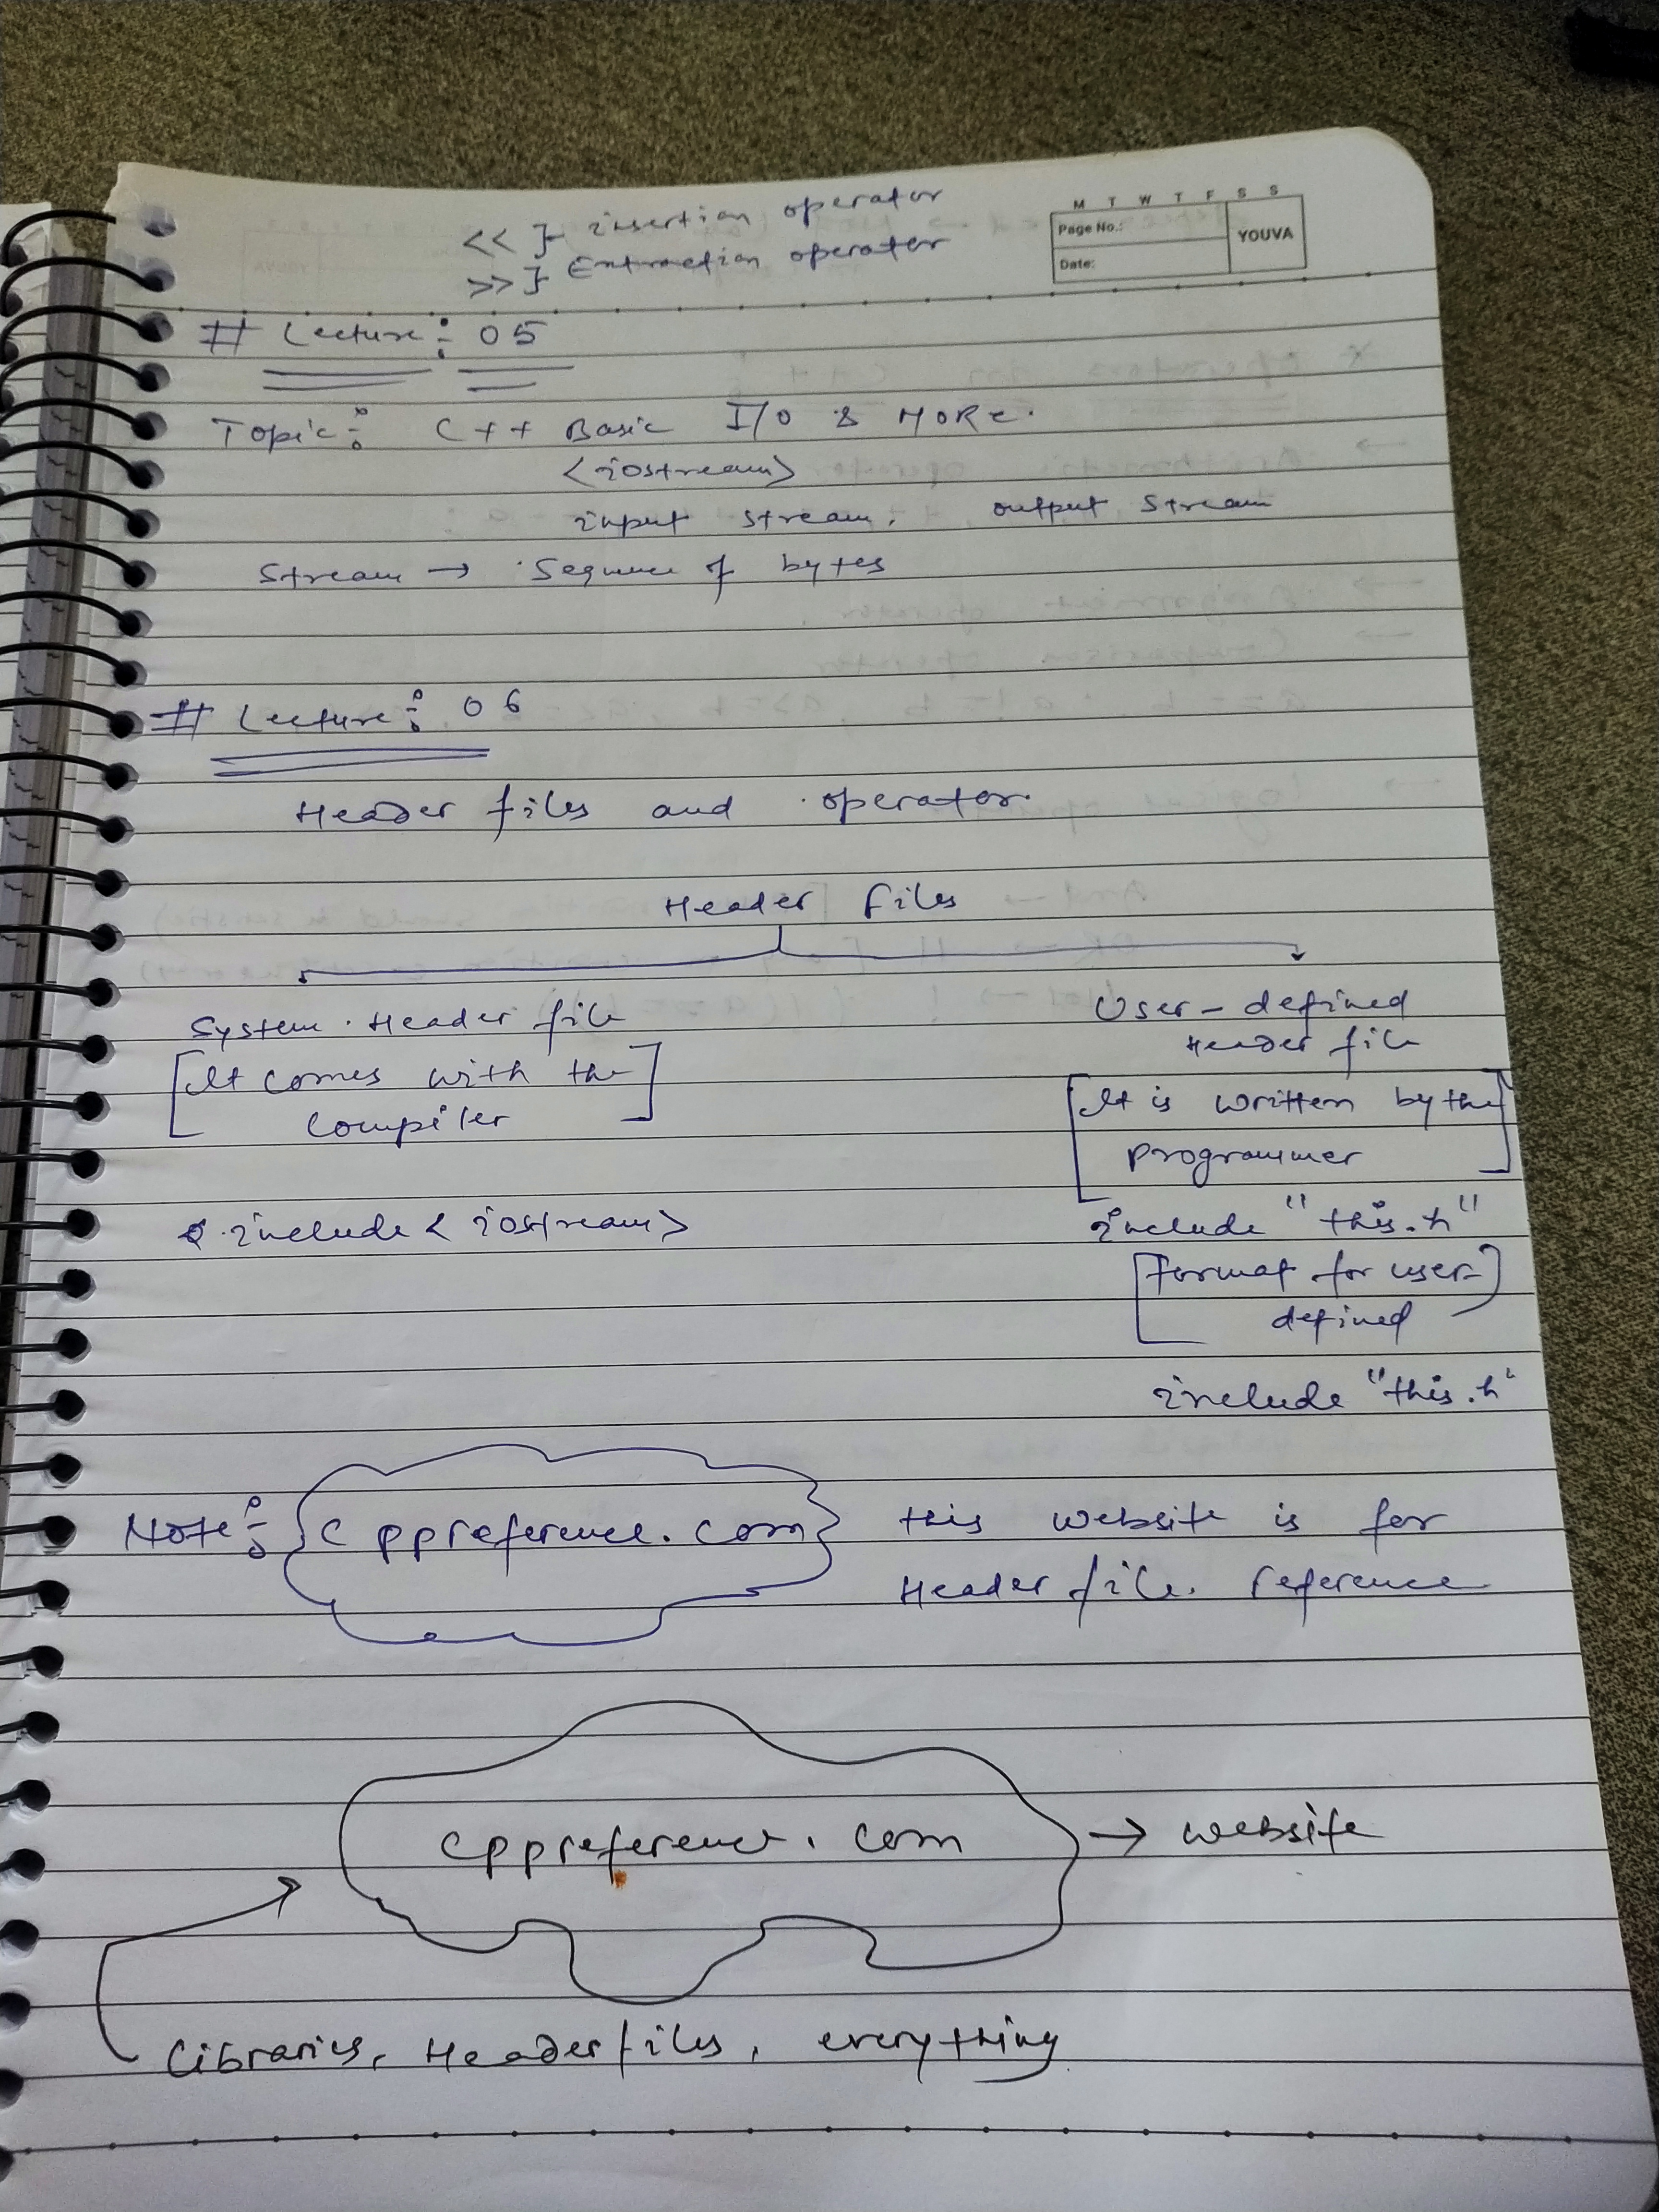 << }- insertion operator
>> }- Extraction operator
M T W T F S S
Page No.:
Date:
YOUVA
# Lecture:- 05
Topic:- C++ Basic I/O & MORE.
<iostream>
input stream, output stream
Stream → Sequence of bytes
# Lecture:- 06
Header files and operator.
Header files
System Header file
[It comes with the
compiler]
include <iostream>
User-defined
Header file
[It is written by the
programmer]
include "this.h"
[format for user-
defined]
include "this.h"
Note:- cppreference.com this website is for
Header file. reference
cppreference.com → website
Libraries, Header files, everything